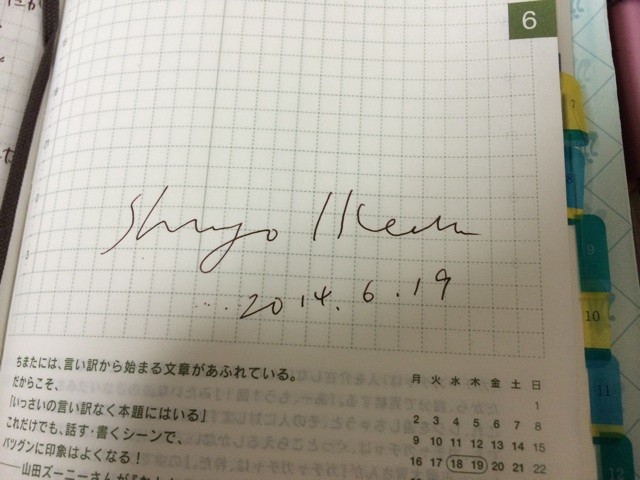 6
Shuyo Ikeda
2014.6.19
ちまたには、言い訳から始まる文章があふれている。
だからこそ、
「いっさいの言い訳なく本題にはいる」
これだけでも、話す・書くシーンで、
バツグンに印象はよくなる!
月 火 水 木 金 土 日
1
2 3 4 5 6 7 8
9 10 11 12 13 14 15
16 17 18 19 20 21 22
7
8
9
10
11
12